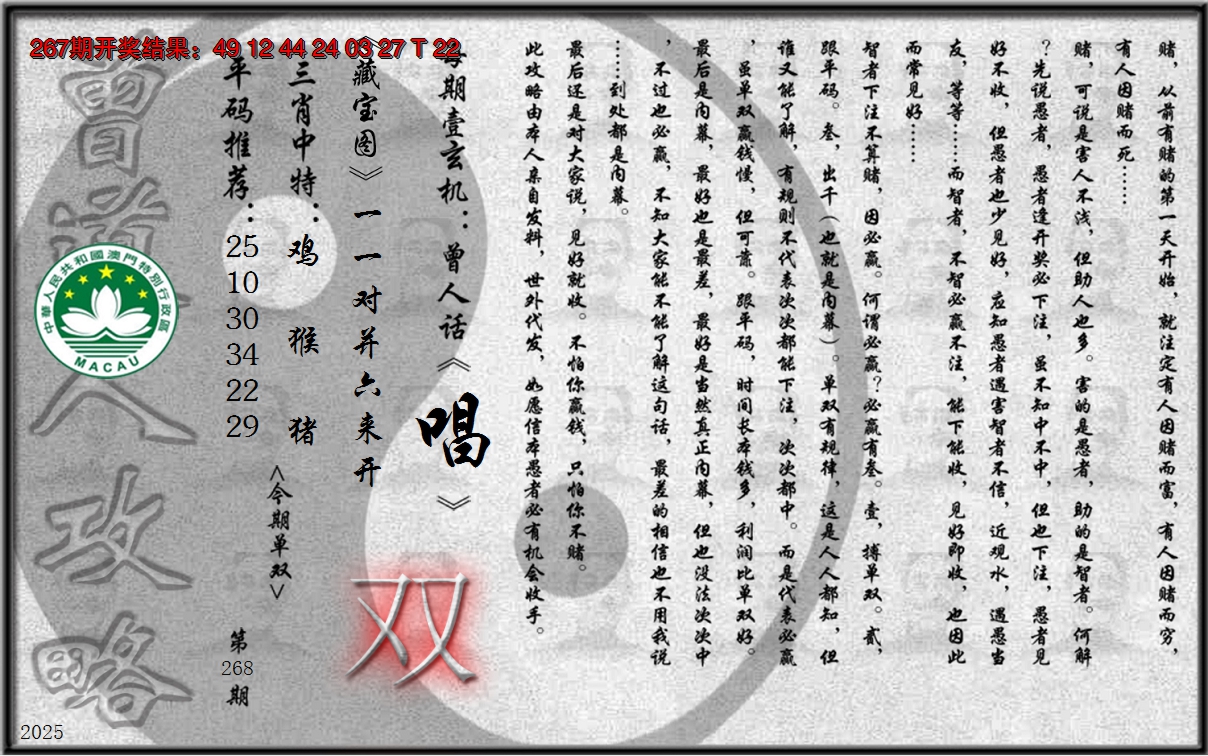 267期开奖结果：49 12 44 24 03 27 T 22
赌，从前有赌的第一天开始，就注定有人因赌而富，有人因赌而穷，
有人因赌而死……
赌，可说是害人不浅，但助人也多。害的是愚者，助的是智者。何解
？先说愚者，愚者逢开奖必下注，虽不知中不中，但也下注，愚者见
好不收，但愚者也少见好，应知愚者遇害智者不信，近观水，遇愚当
友，等等……而智者，不智必赢不注，能下能收，见好即收，也因此
而常见好……
智者下注不算赌，因必赢。何谓必赢？必赢有叁。壹，搏单双。贰，
跟平码。叁，出千（也就是内幕）。单双有规律，这是人人都知，但
谁又能了解，有规则不代表次次都能下注，次次都中。而是代表必赢
，虽单双赢钱慢，但可靠。跟平码，时间长本钱多，利润比单双好。
最后是内幕，最好也是最差，最好是当然真正内幕，但也没法次次中
，不过也必赢，不知大家能不能了解这句话，最差的相信也不用我说
……到处都是内幕。
最后还是对大家说，见好就收。不怕你赢钱，只怕你不赌。
此攻略由本人亲自发料，世外代发，如愿信本愚者必有机会收手。
每期壹玄机：曾人话《唱》
《藏宝图》一一对并六来开
双
三肖中特：鸡 猴 猪
<今期单双>
平码推荐：25 10 30 34 22 29
第268期
曾道人攻略
中華人民共和國澳門特別行政區
MACAU
2025